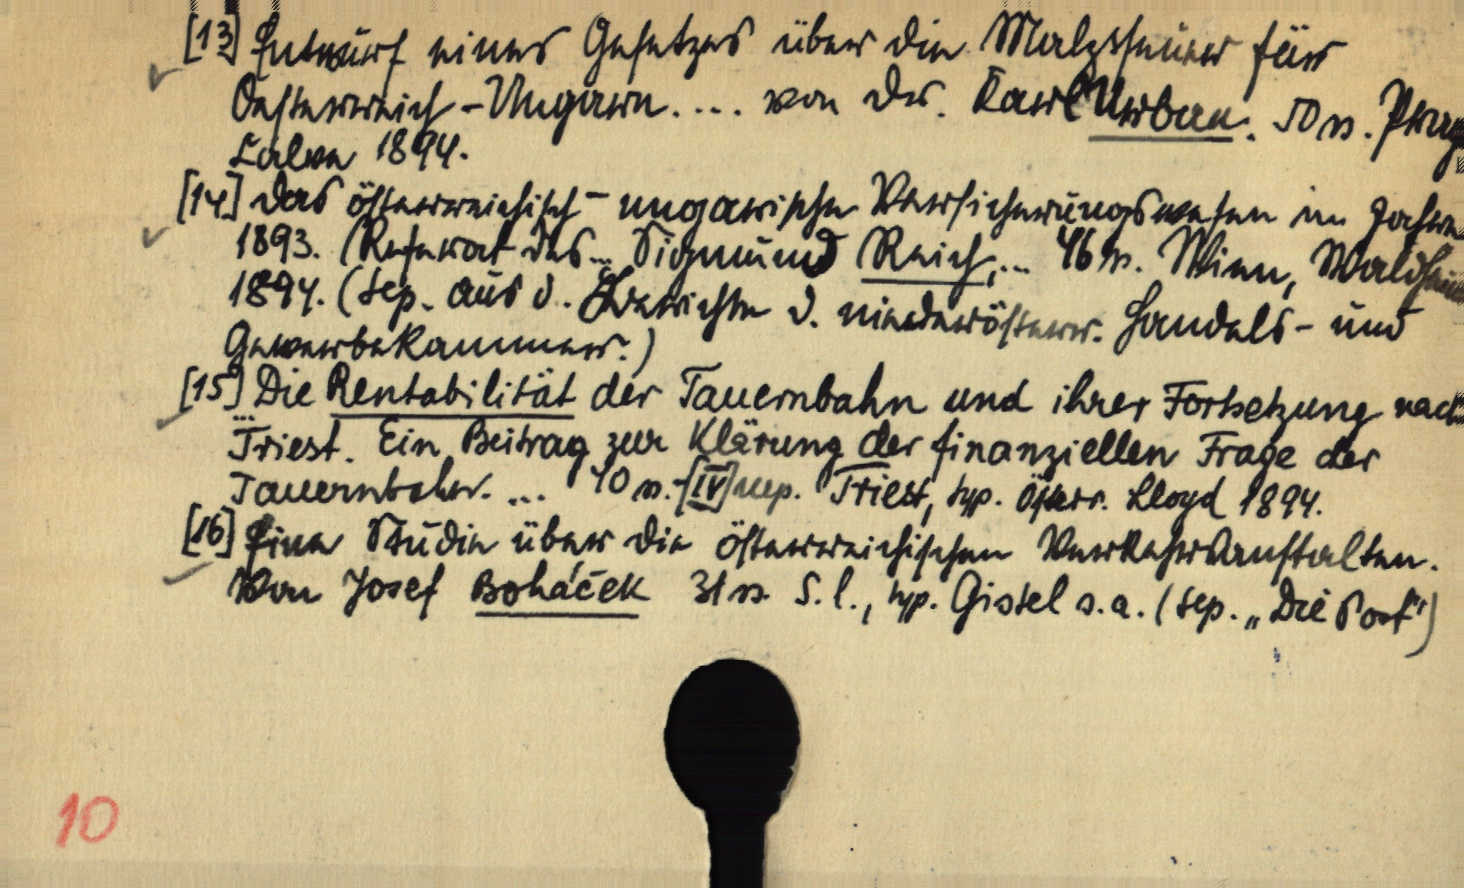 [13] Entwurf eines Gesetzes über die Malzsteuer für
Oesterreich-Ungarn.... von Dr. Karl Urban. 50 s. Prag
Calve 1894.
[14] Das österreichisch-ungarische Versicherungswesen im Jahre
1893. (Referat des... Sigmund Reich,... 46 s. Wien, Waldheim
1894. (Sep. aus d. Berichte d. niederösterr. Handels- und
Gewerbekammer.)
[15] Die Rentabilität der Tauernbahn und ihrer Fortsetzung nach
Triest. Ein Beitrag zur Klärung der finanziellen Frage der
Tauernbahn. ... 40 s. [IV] Triest, typ. Österr. Lloyd 1894.
[16] Eine Studie über die österreichischen Verkehrsanstalten.
Von Josef Boháček 31 s. S.l., typ. Gistel s.a. (Sep. „Die Post")
10